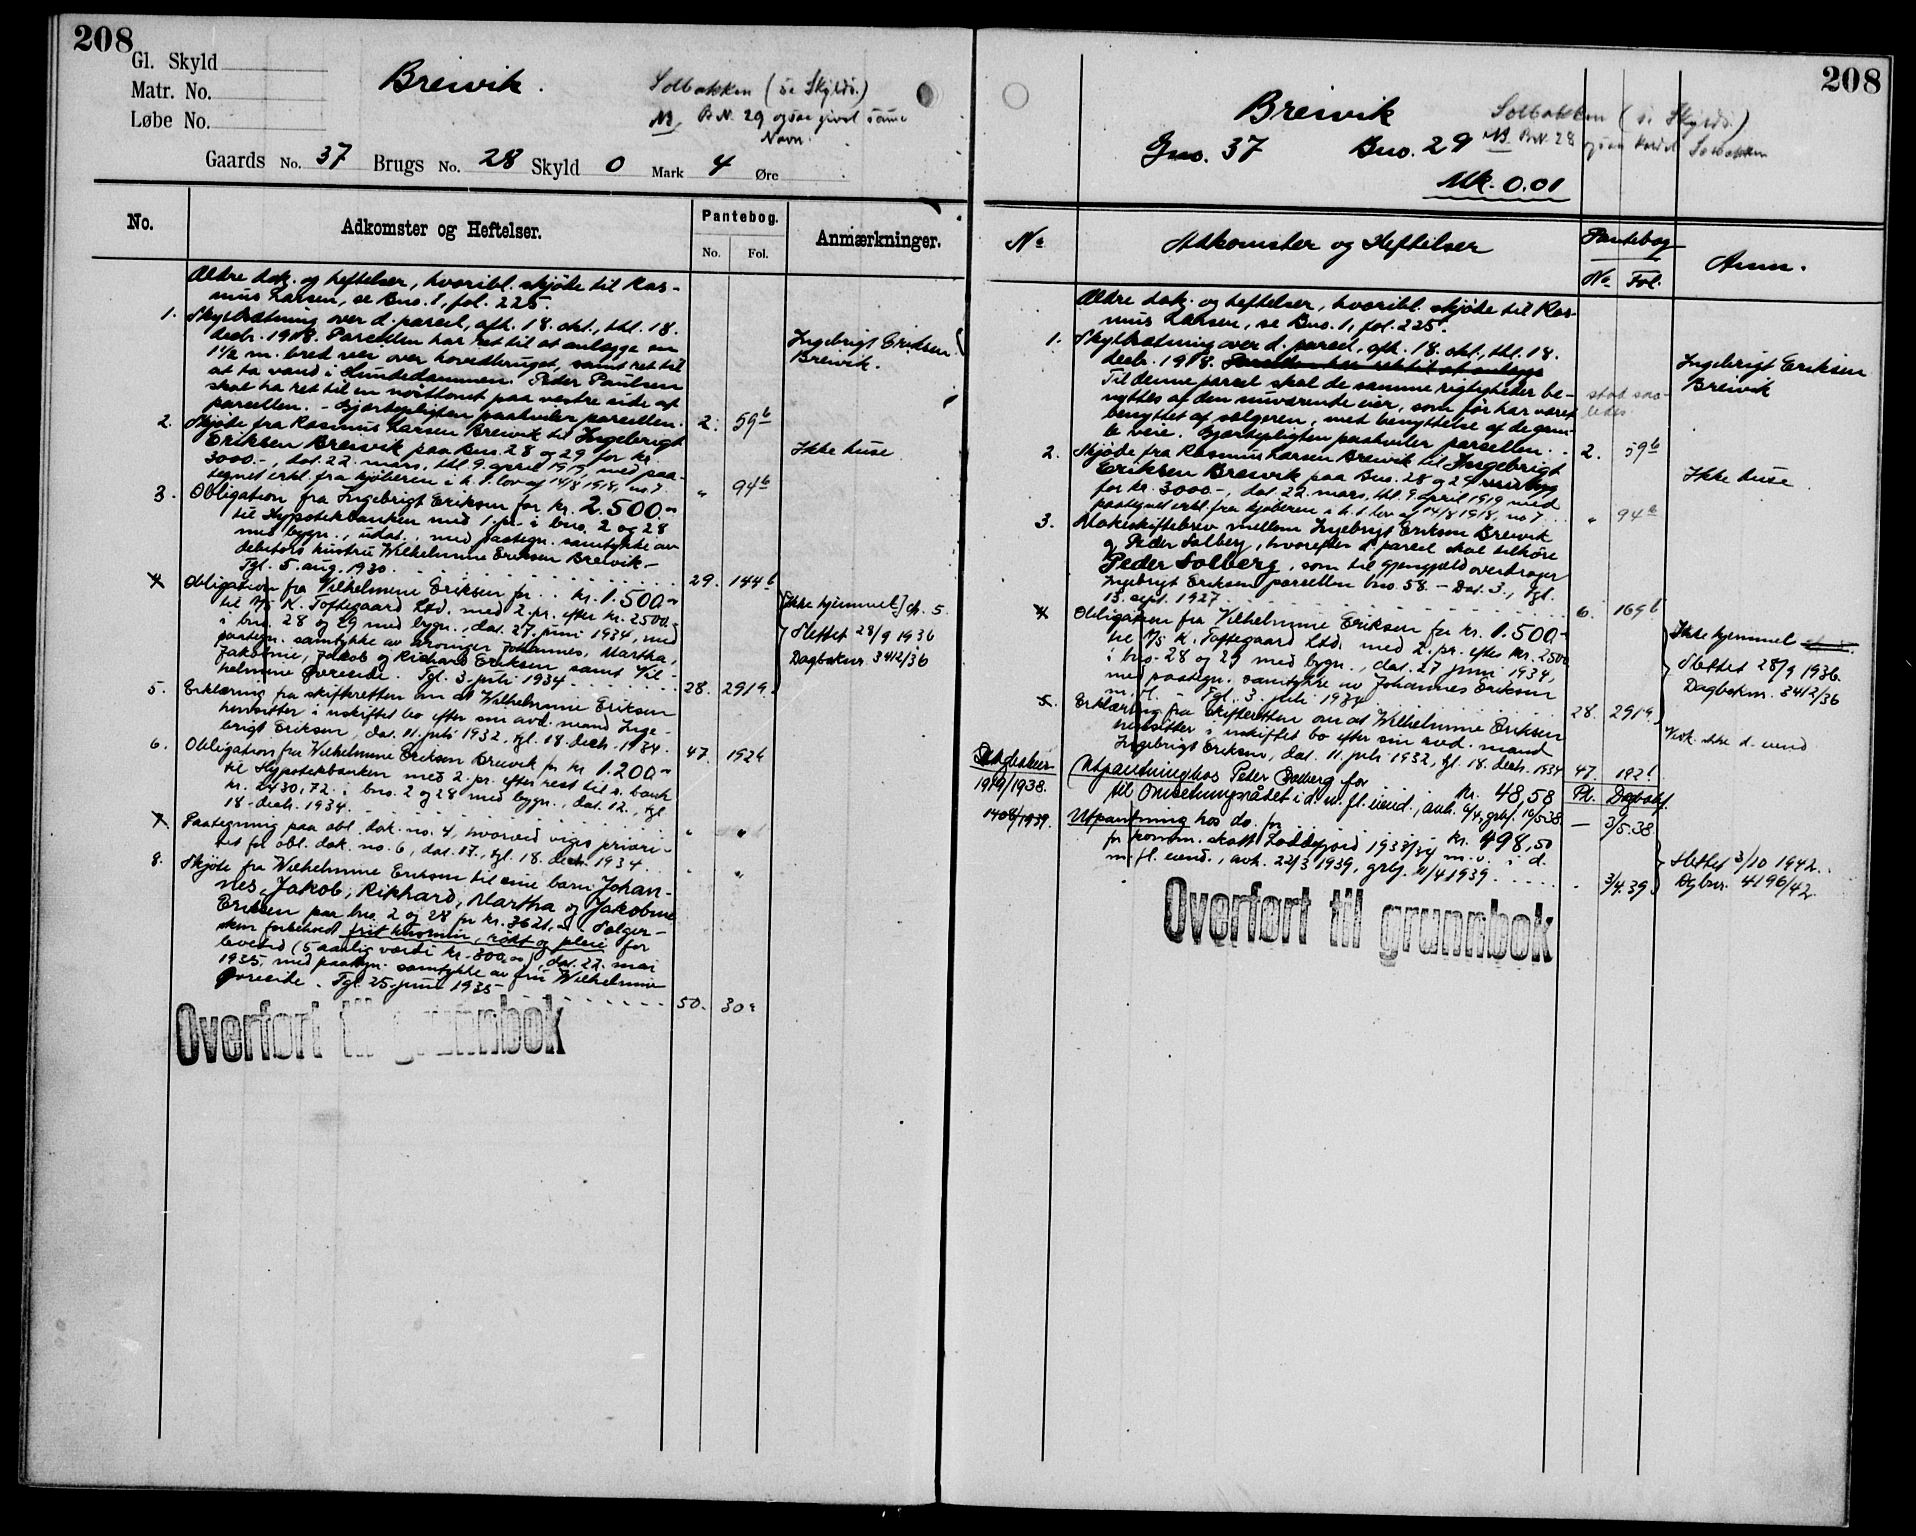 208
Gl. Skyld
Matr. No.
Løbe No.
Breivik.
Solbakken (se Skylds.)
NB. B.N. 29 ogsaa givet samme
Navn.
Gaards No. 37 Brugs No. 28 Skyld 0 Mark 4 Øre
No.
Adkomster og Heftelser.
Pantebog.
No. Fol.
Anmærkninger.
Ældre dok. og heftelser, hvoribl. skjøde til Ras-
mus Larsen, se Bno. 1, fol. 225.
1. Skyldsætning over d. parcel, afh. 18. okt., thl. 18.
decb. 1918. Parcellen har ret til at anlægge en
1½ m. bred vei over hovedbruget, samt ret til
at ta vand i Hundedammen. Peder Paulsen
skal ha ret til en nøsttomt paa vestre side af
parcellen. - Gjærdepligten paahviler parcellen. 2. 59b
Ingebrigt Eriksen
Breivik.
2. Skjøde fra Rasmus Larsen Breivik til Ingebrigt
Eriksen Breivik paa Bno. 28 og 29 for kr.
3000.-, dat. 22. mars, thl. 9. april 1919, med paa-
tegnet erkl. fra kjøberen i h. t. lov af 14/8 1918, no 7. " 94b
Ikke huse
3. Obligation fra Ingebrigt Eriksen for kr. 2.500.-
til Hypotekbanken med 1. pr. i bno. 2 og 28
med bygn., udat., med paategn. samtykke av
debitors hustru Wilhelmine Eriksen Breivik -
Tgl. 5. aug. 1930. 29. 144b
4. Obligation fra Vilhelmine Eriksen for kr. 1.500.-
til A/S K. Toftegaard Ltd. med 2. pr. efter kr. 2500.-
i bno. 28 og 29 med bygn., dat. 27. juni 1934, med
paategn. samtykke av arvinger Johannes, Martha,
Jakobine, Jakob og Richard Eriksen samt Vil-
helmine Øvreeide. Tgl. 3. juli 1934. 28. 291a.
[Ikke hjemmel] cfr. 5.
Slettet 28/9 1936
Dagboknr. 3412/36
5. Erklæring fra skifteretten om at Wilhelmine Eriksen
hensitter i uskiftet bo efter sin avd. mand Inge-
brigt Eriksen, dat. 11. juli 1932, tgl. 18. decb. 1934. 47. 192b
6. Obligation fra Wilhelmine Eriksen Breivik for kr. 1.200.-
til Hypotekbanken med 2. pr. efter rest til s. bank
kr. 2430,72. i bno. 2 og 28 med bygn., dat. 12., tgl
18. decb. 1934. " "
7. Paategning paa obl. dok. no. 4, hvorved viges priori-
tet for obl. dok. no. 6, dat. 17., tgl. 18. decb. 1934. " "
8. Skjøde fra Wilhelmine Eriksen til sine barn Johan-
nes, Jakob, Rikhard, Martha og Jakobine
Eriksen paa bno. 2 og 28 for kr. 3621,- Sælger-
sken forbeholdt frit husrum, røkt og pleie for
levetid (5 aarlig værdi kr. 300,00), dat. 22. mai
1935, med paategn. samtykke av fru Wilhelmine
Øvreeide. Tgl. 25. juni 1935 50. 30a
Overført til grunnbok
208
Breivik
Solbakken (se Skylds.)
NB BN. 28 ogsaa kaldet Solbakken
Gno. 37 Bno. 29
Mk. 0.01
No
Adkomster og Heftelser
Pantebog
No Fol.
Anm.
Ældre dok. og heftelser, hvoribl. skjøde til Ras-
mus Larsen, se Bno. 1, fol. 225.
1. Skyldsætning over d. parcel, afh. 18. okt., thl. 18.
decb. 1918. Parcellen har ret til at anlægge
Til denne parcel skal de samme rigtigheder be-
nyttes af den nuværende eier, som før har været
benyttet af sælgeren, med benyttelse af de gam-
le veie. Gjærdepligten paahviler parcellen. 2. 59b
stod saa-
ledes
Ingebrigt Eriksen
Breivik
2. Skjøde fra Rasmus Larsen Breivik til Ingebrigt
Eriksen Breivik paa Bno. 28 og 29
for kr. 3000.-, dat. 22. mars, thl. 9. april 1919 med
paategnet erkl. fra kjøberen i h. t. lov af 14/8 1918, no 7. " 94a
Ikke huse.
3. Makeskiftebrev mellem Ingebrigt Eriksen Breivik
og Peder Solberg, hvorefter d. parcel skal tilhøre
Peder Solberg, som til gjengjæld overdrager
Ingebrigt Eriksen parcellen bno. 58. - Dat. 3., Tgl.
13. sept. 1927. 6. 169b
4. Obligation fra Vilhelmine Eriksen for kr. 1.500.-
til A/S K. Toftegaard Ltd. med 2. pr. efter kr. 2500
i bno. 28 og 29 med bygn., dat. 27 juni 1934,
med paategn. samtykke av Johannes Eriksen
m. fl. - Tgl. 3. juli 1934 28. 291a.
Ikke hjemmel
Slettet 28/9 1936.
Dagboknr. 3412/36
5. Erklæring fra skifteretten om at Wilhelmine Eriksen
hensitter i uskiftet bo efter sin avd. mand
Ingebrigt Eriksen, dat. 11. juli 1932, tgl. 18. decb. 1934 47. 192b
Vedk. ikke d. eiend
Dagboknr
1919/1938. Utpantning hos Peter Solberg for kr. 48,58 Pl. Dagbokf.
til Omsetningsrådet i d. m. fl. eiend., avh. 6/4, grbf. 10/5 38. — 3/5.38
1408/1939. Utpantning hos do. for kr. 498,50
for komm. skatt Laddefjord 1933/34 m. v. i d.
m. fl. eiend., avh. 22/3 1939, grbf. 11/4 1939. 3/4.39
Slettet 3/10 1942.
Dgbnr. 4196/42
Overført til grunnbok